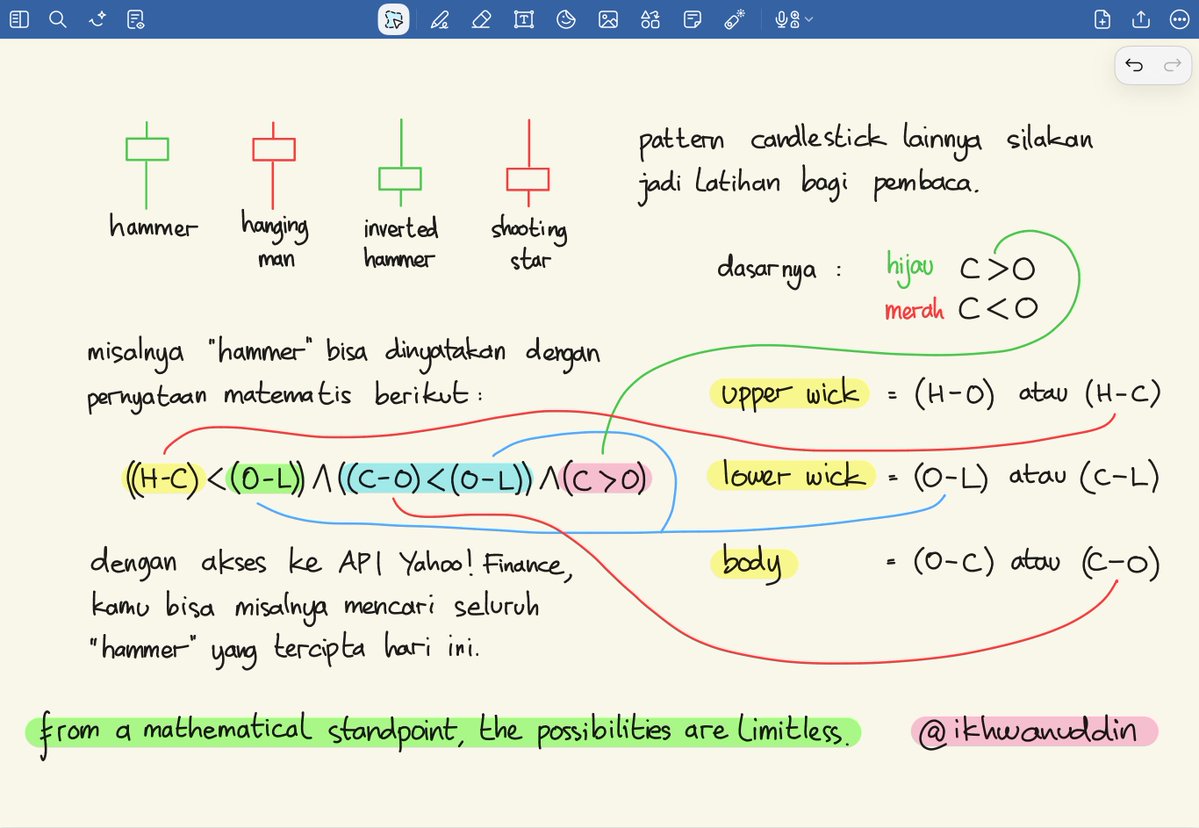 hammer
hanging
man
inverted
hammer
shooting
star
pattern candlestick lainnya silakan
jadi latihan bagi pembaca.
dasarnya : hijau C>O
merah C<O
misalnya "hammer" bisa dinyatakan dengan
pernyataan matematis berikut :
((H-C)<(O-L))∧((C-O)<(O-L))∧(C>O)
upper wick = (H-O) atau (H-C)
lower wick = (O-L) atau (C-L)
body = (O-C) atau (C-O)
dengan akses ke API Yahoo! Finance,
kamu bisa misalnya mencari seluruh
"hammer" yang tercipta hari ini.
from a mathematical standpoint, the possibilities are limitless.
@ikhwanuddin